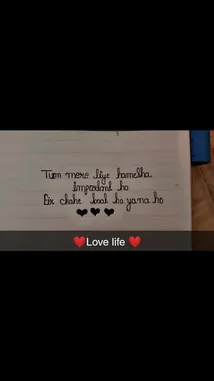 Tum mere liye hamesha
important ho
Fir chahe baat ho ya na ho
❤❤❤
❤️Love life ❤️